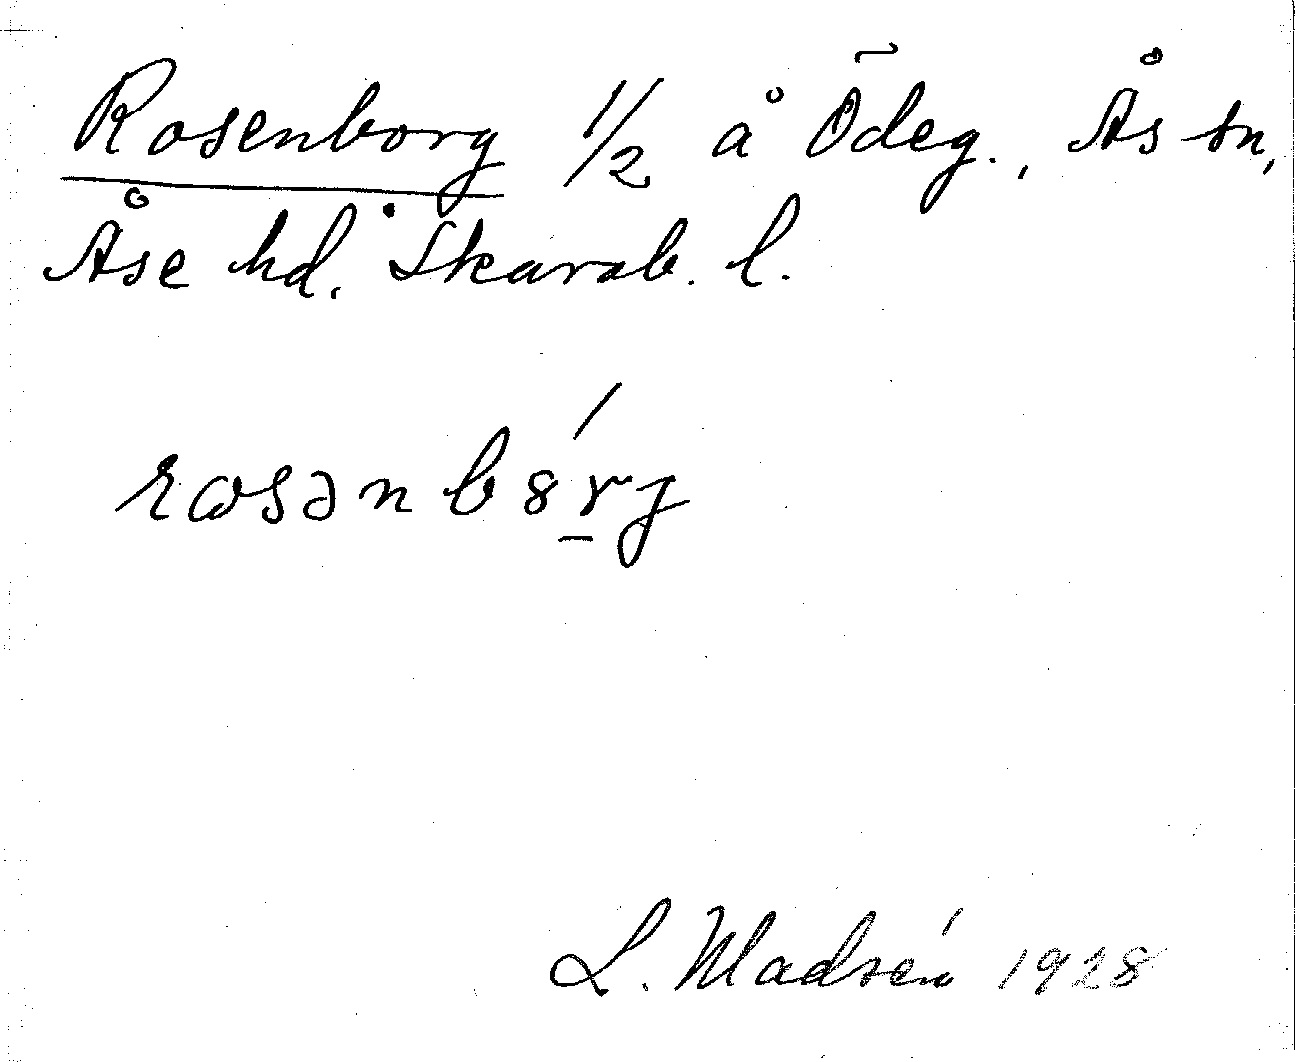 Rosenborg 1/2 å Ödeg., Ås sn,
Åse hd. Skarab. l.
rosənb8rg
L. Madsén 1928